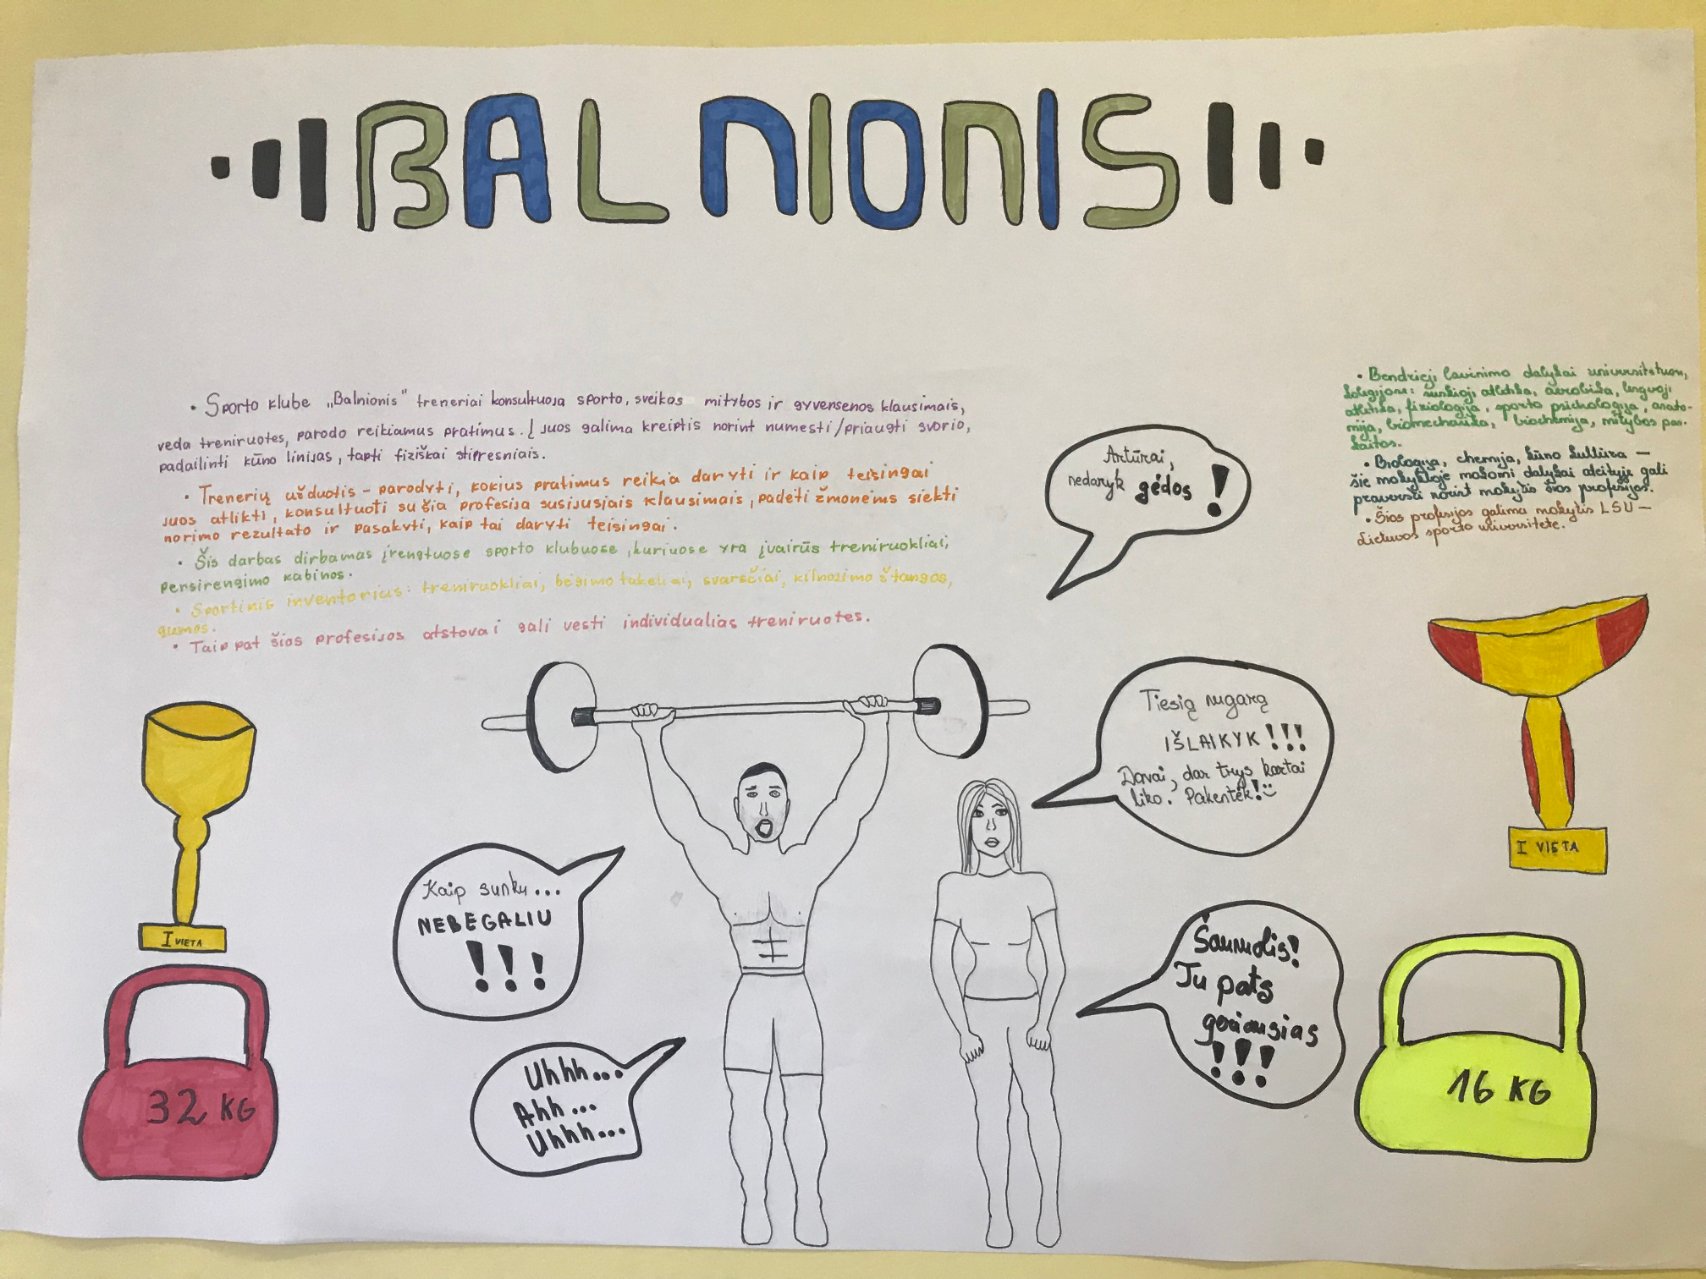 BALNIONIS
• Sporto klube „Balnionis" treneriai konsultuoja sporto, sveikos mitybos ir gyvensenos klausimais,
veda treniruotes, parodo reikiamus pratimus. Į juos galima kreiptis norint numesti/priaugti svorio,
padailinti kūno linijas, tapti fiziškai stipresniais.
• Trenerių užduotis - parodyti, kokius pratimus reikia daryti ir kaip teisingai
juos atlikti, konsultuoti su šia profesija susijusiais klausimais, padėti žmonėms siekti
norimo rezultato ir pasakyti, kaip tai daryti teisingai.
• Šis darbas dirbamas įrengtuose sporto klubuose, kuriuose yra įvairūs treniruokliai,
persirengimo kabinos.
• Sportinis inventorius: treniruokliai, bėgimo takeliai, svarsčiai, kilnojimo štangos,
gumos.
• Taip pat šios profesijos atstovai gali vesti individualias treniruotes.
• Bendrieji lavinimo dalykai universitetuose,
kolegijose: sunkioji atletika, aerobika, lengvoji
atletika, fiziologija, sporto psichologija, anato-
mija, biomechanika, biochemija, mitybos pas-
kaitos.
• Biologija, chemija, kūno kultūra —
šie mokykloje mokomi dalykai ateityje gali
praversti norint mokytis šios profesijos.
• Šios profesijos galima mokytis LSU —
Lietuvos sporto universitete.
Artūrai,
nedaryk gėdos !
Tiesią nugarą
IŠLAIKYK!!!
Davai, dar trys kartai
liko. Pakentėk!
Kaip sunku...
NEBEGALIU
!!!
Šaunuolis!
Tu pats
geriausias
!!!
Uhhh...
Ahh...
Uhhh...
I VIETA
I VIETA
32 KG
16 KG